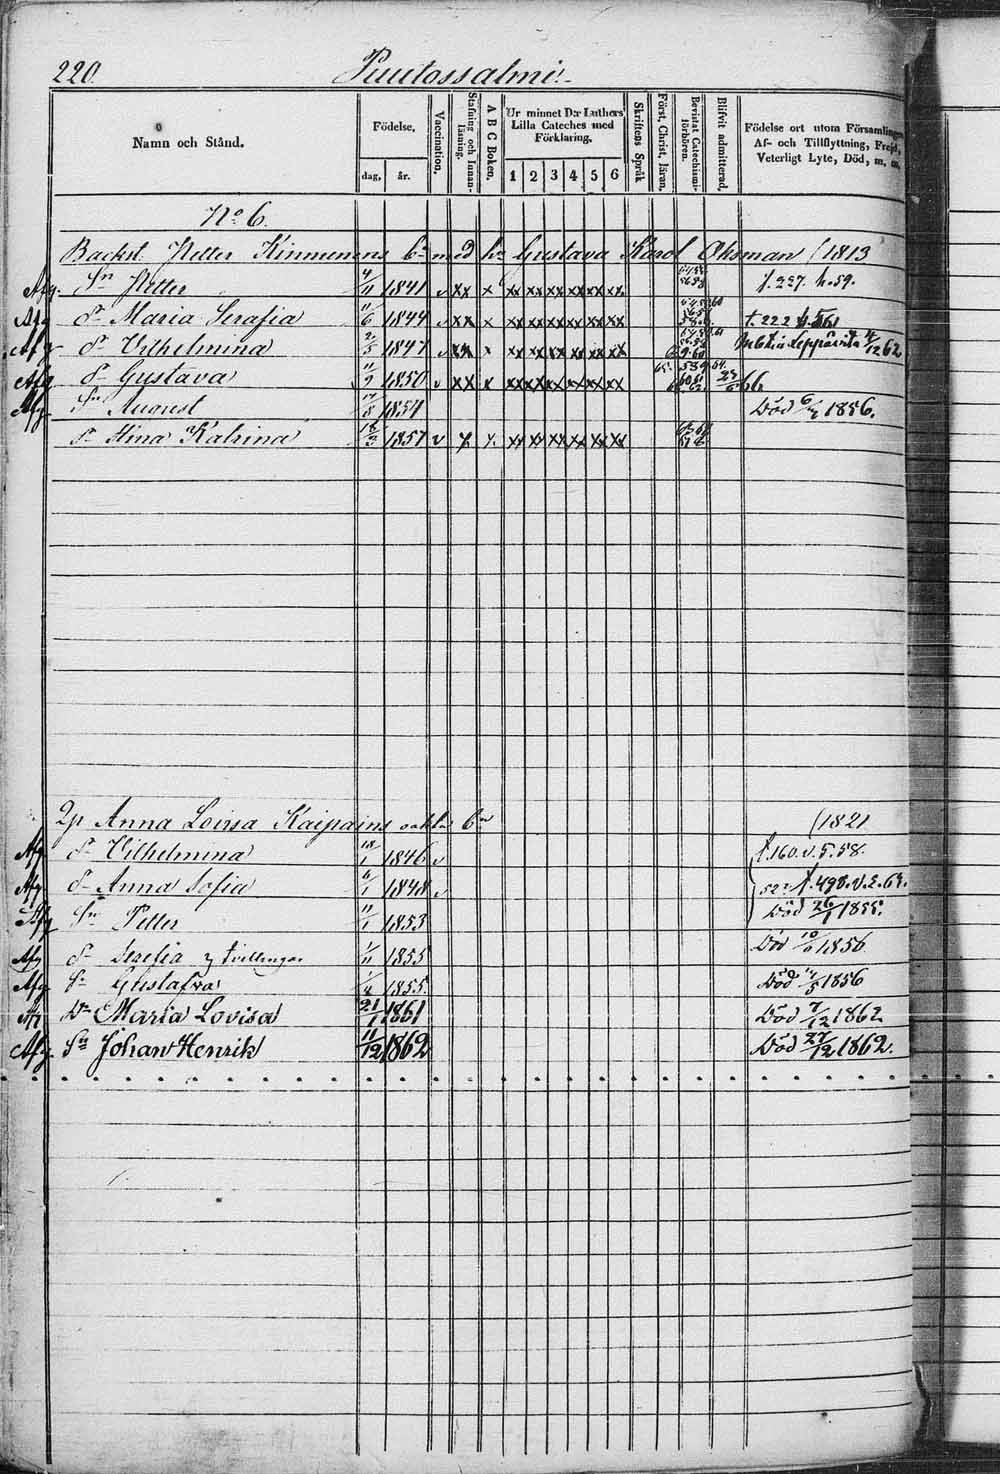 220. Puutossalmi.
Namn och Stånd. Födelse, dag, år. Vaccination, Stafning och Innanläsning, A B C Boken, Ur minnet D:r Luthers Lilla Cateches med Förklaring. 1 2 3 4 5 6 Skriftens Språk Först. Christ. läran, Bevistat Catechismiförhören. Blifvit admitterad, Födelse ort utom Församlingen, Af- och Tillflyttning, Frejd, Veterligt Lyte, Död, m. m.
No 6.
Backst. Petter Kinnunens bn med h. Gustava Karol. Oksman (1813
Afg. Sn Petter 4/11 1841 v xx x xx xx xx xx xx xx f. 227. h. 59.
Afg Dr Maria Serafia 11/6 1844 v xx x xx xx xx xx xx xx t. 222
Afg Dr Vilhelmina 2/5 1847 v xx x xx xx xx xx xx xx Leppävirta 4/12 62
Afg Dr Gustava 11/9 1850 v xx x xx xx xx xx xx xx
Afg Sn August 17/8 1854 Död 6/2 1856.
Dr Stina Katrina 16/3 1857 v x x. xx xx xx xx xx xx
Anna Lovisa Kaipains bn (1821
Afg Dr Vilhelmina 18/1 1846 v f. 160. v. 5. 58.
Afg Dr Anna Sofia 6/1 1848 v f. 498. v. 2. 63.
Afg Sn Petter 11/1 1853 Död 26/1 1855.
Afg Dr Serefia } tvillingar 1/11 1855 Död 10/6 1856
Afg Dr Gustafva 1855. Död 11/5 1856
Af Dr Maria Lovisa 21/1 1861 Död 7/12 1862
Afg. Sn Johan Henrik 11/12 1862 Död 27/12 1862.